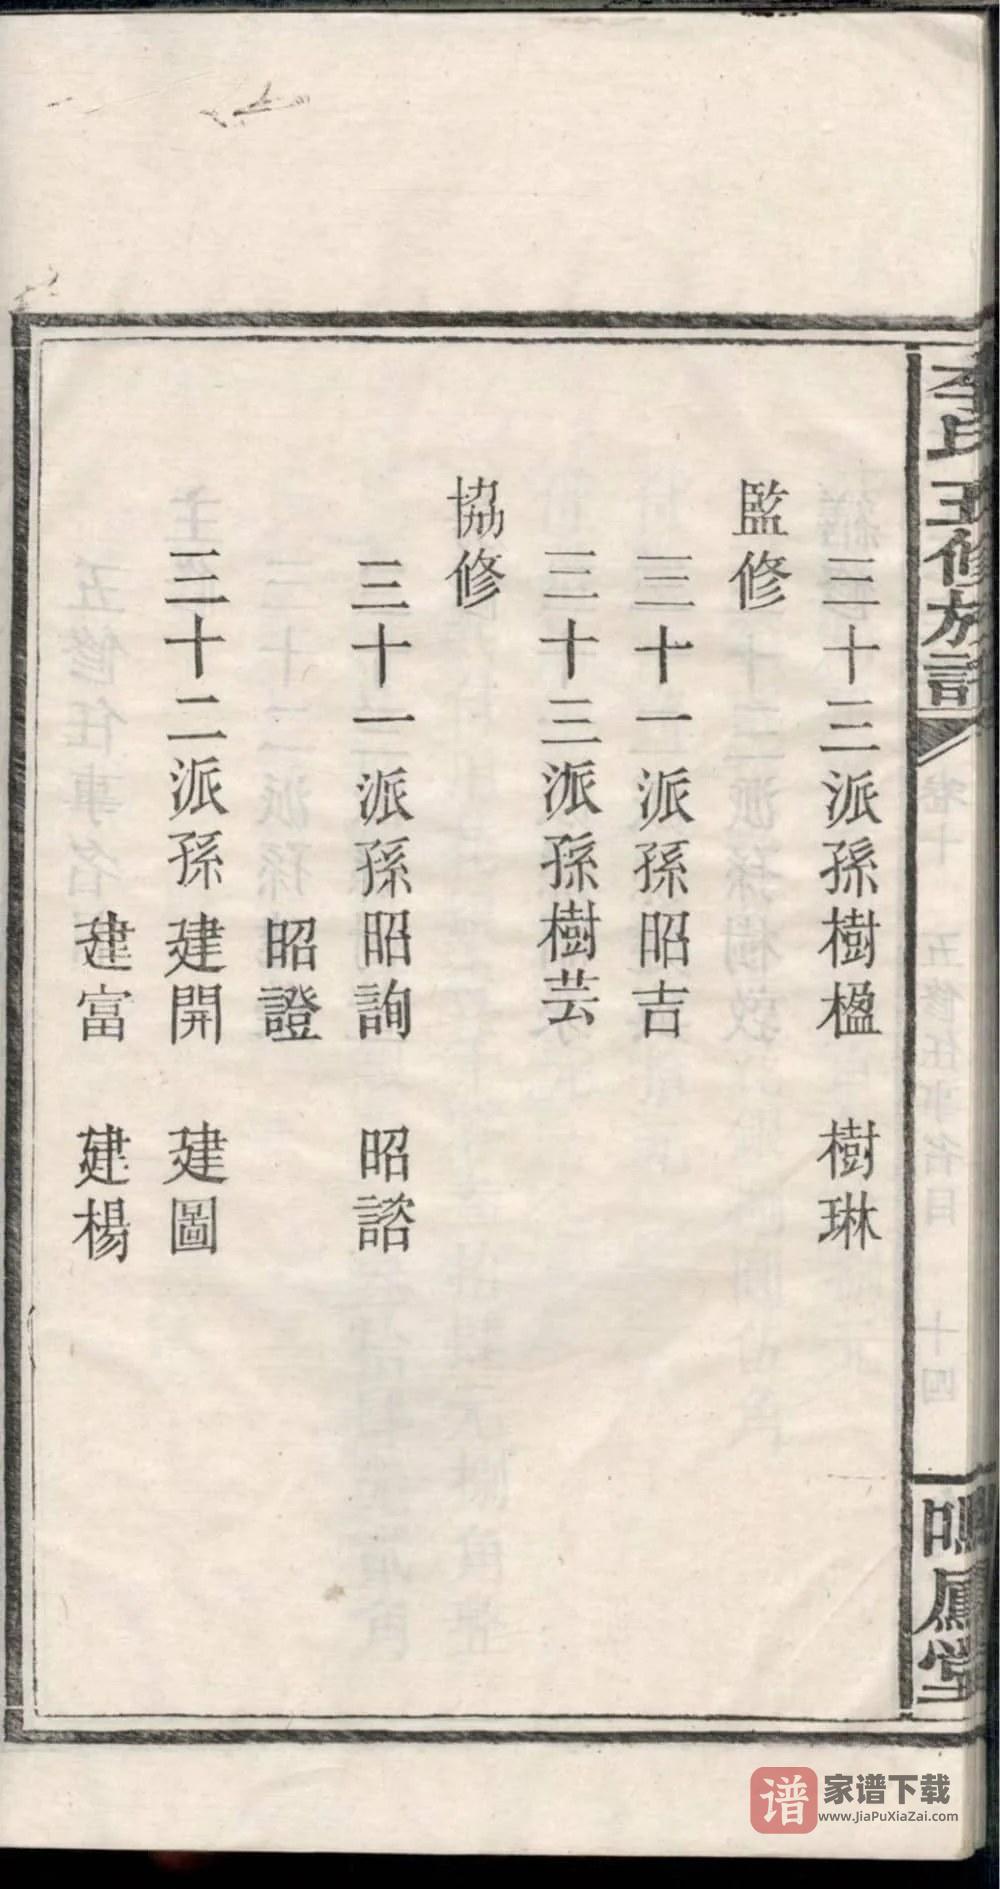 李氏五修族譜
卷十 五修任事名目 十四
鳴鳳堂
三十三派孫樹楹 樹琳
監修
三十一派孫昭吉
三十三派孫樹芸
協修
三十一派孫昭詢 昭諮
昭證
三十二派孫建開 建圖
建富 建楊
谱 家谱下载
www.JiaPuXiaZai.com